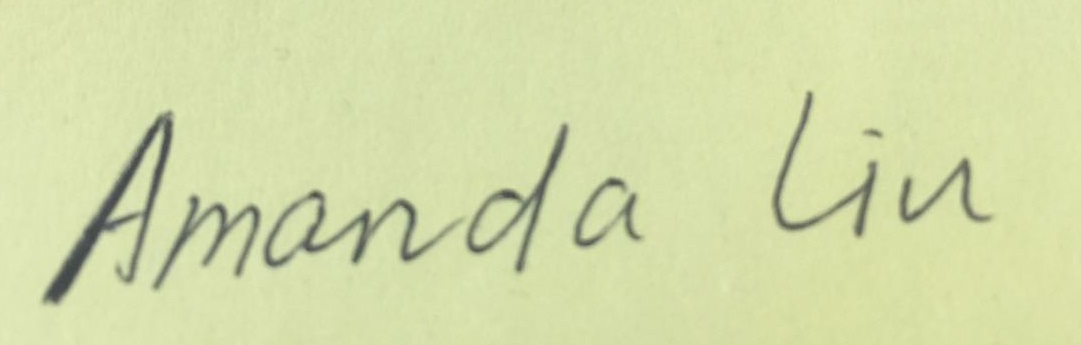 Amanda Liu